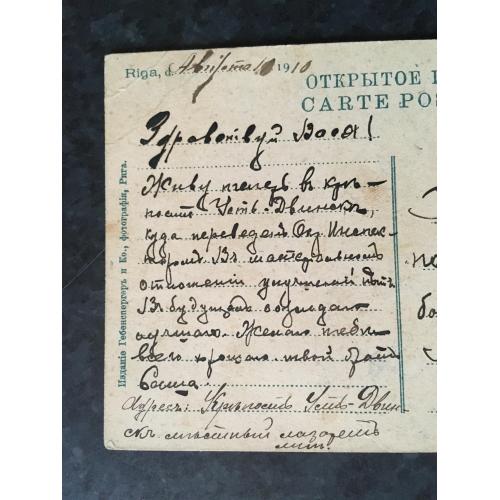 Riga, d. Августа 10 1910
ОТКРЫТОЕ
CARTE POS
Здравствуй Вася!
Живу теперь в крѣ-
пости Усть-Двинскъ,
куда переведенъ Окр. Инспек-
торомъ. Въ матерьяльномъ
отношенiи улучшенiй нѣтъ.
Въ будущемъ ожидаю
лучшаго. Желаю тебѣ
всего хорошаго твой братъ
Саша.
Адресъ: Крѣпость Усть-Двин
скъ мѣстный лазаретъ
Изданiе Гебенспергеръ и Ко., фотографiя, Рига.